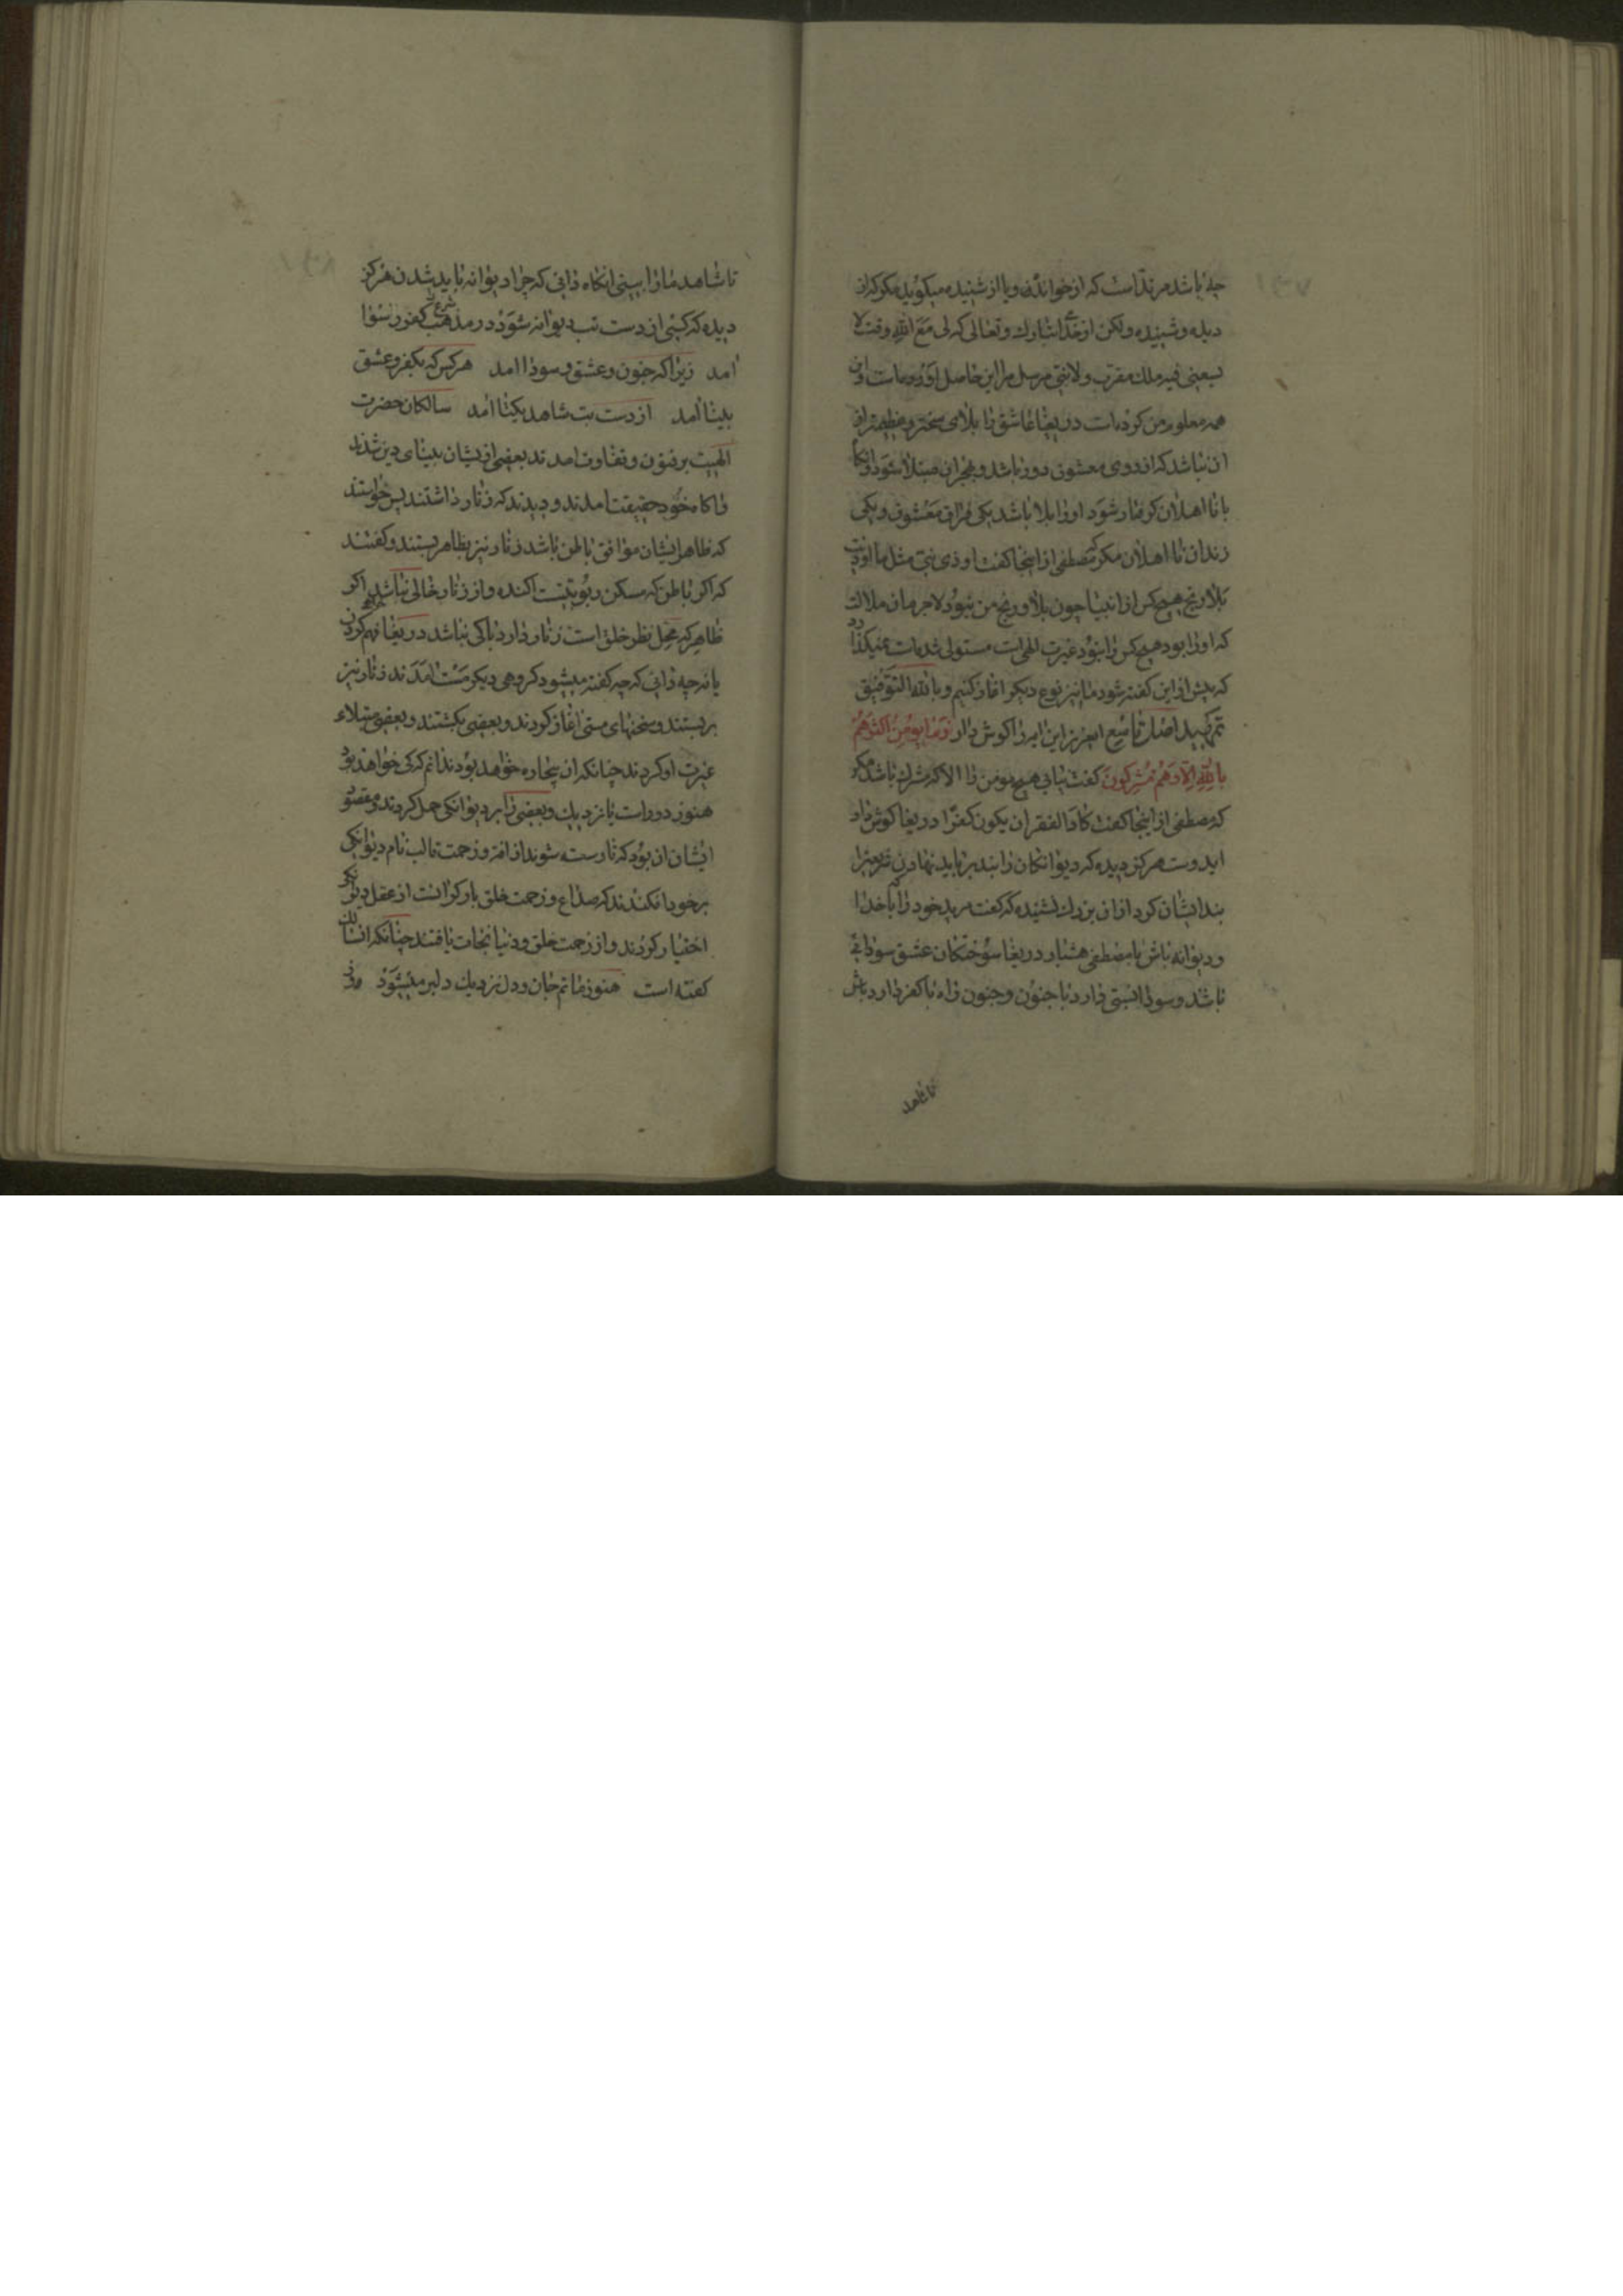 چه باشد مرتد است که از خواندن و یا از شنیده میگوید مگو که از
دیده و شنیده ولکن از خدا تبارک و تعالی که لی مع الله وقت لا
یسعنی فیه ملک مقرب ولا نبی مرسل مرا این حاصل او
همه معلوم من کرده است دریغا عاشق را بلای سختر و عظیمتر از
ان نباشد که از روی معشوق دور باشد و بهجران مبتلا شود وانگاه
با نا اهلان گرفتار شود او را بلا باشد یکی فراق معشوق و یکی
زندان نا اهلان مگر که مصطفی از اینجا گفت اوذی نبی مثل ما اوذیت
بلا و رنج هیچ کس از انبیا چون بلا و رنج من نبود لاجرم ان
که او را بود هیچ کس را نبود غیرت الهی مستولی شده است نمیگذارد
که بیش از این گفته شود ما نیز نوع دیگر اغاز کنیم و بالله التوفیق
تمهید اصل تاسع ای عزیز این را گوش دار وما یومن اکثرهم
بالله الا وهم مشرکون گفت نیابی هیچ مومن را الا که مشرک باشد مگر
که مصطفی از اینجا گفت کاد الفقر ان یکون کفرا دریغا گوش دار
ای دوست هرگز دیده که دیوانگان را بند برباید نهادن شریعت را
بند ایشان کرد از ان بزرگ نشنیده که گفت مرید خود را که با خدا
دیوانه باش با مصطفی هشیار دریغا سوختگان عشق سودائی
باشند و سودا نسبتی دارد با جنون و جنون راه با کفر دارد باش
تا شاهد
تا شاهد ما را ببینی انگاه دانی که چرا دیوانه باید شدن هرگز
دیده که کسی از دست بت دیوانه شود در مذهب شرع کفر رسوا
امد زیرا که جنون و عشق و سودا امد هر کس که بکفر و عشق
بینا امد از دست بت شاهد یکتا امد سالکان حضرت
الهیت بر فنون و تفاوت امدند بعضی از ایشان بینای دین شدند
واگاه خود حقیقت امدند و دیدند که زنار داشتند پس خواستند
که ظاهر ایشان موافق باطن باشد زنار نیز بظاهر بستند و گفتند
که اگر باطن که مسکن ربوبیتست اکنده و از زنار خالی نباشد اگر
ظاهر که محل نظر خلق است زنار دارد باکی نباشد دریغا فهم خواهی کردن
یا نه چه دانی که چه گفته میشود گروهی دیگر مست امدند زنار نیز
بربستند و سخنهای مستی اغاز کردند و بعضی بکشتند و بعضی مبتلاء
غیرت او کردند چنانکه ان بیچاره خواهد بود ندانم که کی خواهد بود
هنوز دور است یا نزدیک و بعضی را بر دیوانگی حمل کردند و مقصود
ایشان ان بود که تا رسته شوند از افت و زحمت قالب نام دیوانگی
برخود افکندند که صداع و زحمت خلق بار گرانست از عقل دیوانگی
اختیار کردند و از زحمت خلق و دنیا نجات یافتند چنانکه ان سالک
گفته است هنوز ماتم جان و دل نزدیک دلبر میشود